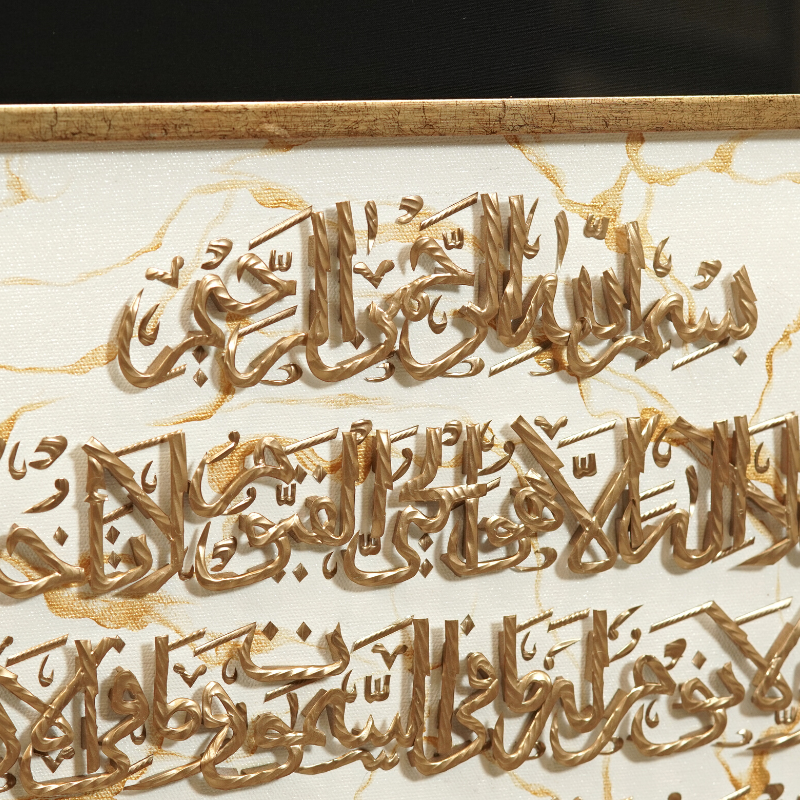 بسم الله الرحمن الرحيم
الله لا إله إلا هو الحي القيوم لا تأخذه
سنة ولا نوم له ما في السموات وما في الأ